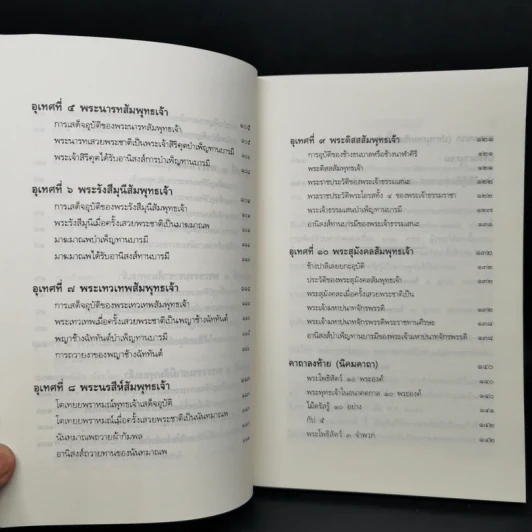 อุเทศที่ ๕ พระนารทสัมพุทธเจ้า ๑๐๕
การเสด็จอุบัติของพระนารทสัมพุทธเจ้า ๑๐๕
พระนารทเสวยพระชาติเป็นพระเจ้าสิริคุตบำเพ็ญทานบารมี
พระเจ้าสิริคุตได้รับอานิสงส์การบำเพ็ญทานบารมี
อุเทศที่ ๖ พระรังสีมุนีสัมพุทธเจ้า
การเสด็จอุบัติของพระรังสีมุนีสัมพุทธเจ้า
พระรังสีมุนีเมื่อครั้งเสวยพระชาติเป็นมาฆมาณพ
มาฆมาณพบำเพ็ญทานบารมี
มาฆมาณพได้รับอานิสงส์ทานบารมี
อุเทศที่ ๗ พระเทวเทพสัมพุทธเจ้า
การเสด็จอุบัติของพระเทวเทพสัมพุทธเจ้า
พระเทวเทพเมื่อครั้งเสวยพระชาติเป็นพญาช้างฉัททันต์
พญาช้างฉัททันต์บำเพ็ญทานบารมี
การถวายงาของพญาช้างฉัททันต์
อุเทศที่ ๘ พระนรสีห์สัมพุทธเจ้า
โตเทยยพราหมณ์พุทธเจ้าเสด็จอุบัติ
โตเทยยพราหมณ์เมื่อครั้งเสวยพระชาติเป็นนันทมาณพ
นันทมาณพถวายผ้ากัมพล
อานิสงส์ถวายทานของนันทมาณพ
อุเทศที่ ๙ พระติสสสัมพุทธเจ้า ๑๒๑
การอุบัติของช้างธนบาลหรือช้างนาฬาคีรี ๑๒๑
พระติสสสัมพุทธเจ้า ๑๒๒
พระราชประวัติของพระเจ้าธรรมเสนะ ๑๒๒
พระราชประวัติพระโอรสทั้ง ๔ ของพระเจ้าธรรมราชา
พระเจ้าธรรมเสนบำเพ็ญทานบารมี
อานิสงส์ทานบารมีของพระเจ้าธรรมเสนะ
อุเทศที่ ๑๐ พระสุมังคลสัมพุทธเจ้า ๑๓๒
ช้างปาลิเลยยกะอุบัติ ๑๓๒
ประวัติของพระสุมังคลสัมพุทธเจ้า ๑๓๒
พระสุมังคละเมื่อครั้งเสวยพระชาติเป็น
พระเจ้ามหาปนาทจักรพรรดิ
พระเจ้ามหาปนาทจักรพรรดิพระราชทานศีรษะ
อานิสงส์บำเพ็ญทานบารมีของพระเจ้ามหาปนาทจักรพรรดิ
คาถาลงท้าย (นิคมคาถา) ๑๔๐
พระโพธิสัตว์ ๑๐ พระองค์ ๑๔๐
พระพุทธเจ้าในอนาคตกาล ๑๐ พระองค์
ไม้ตรัสรู้ ๑๐ อย่าง
กัป ๕ ๑๔๒
พระโพธิสัตว์ ๓ จำพวก ๑๔๒